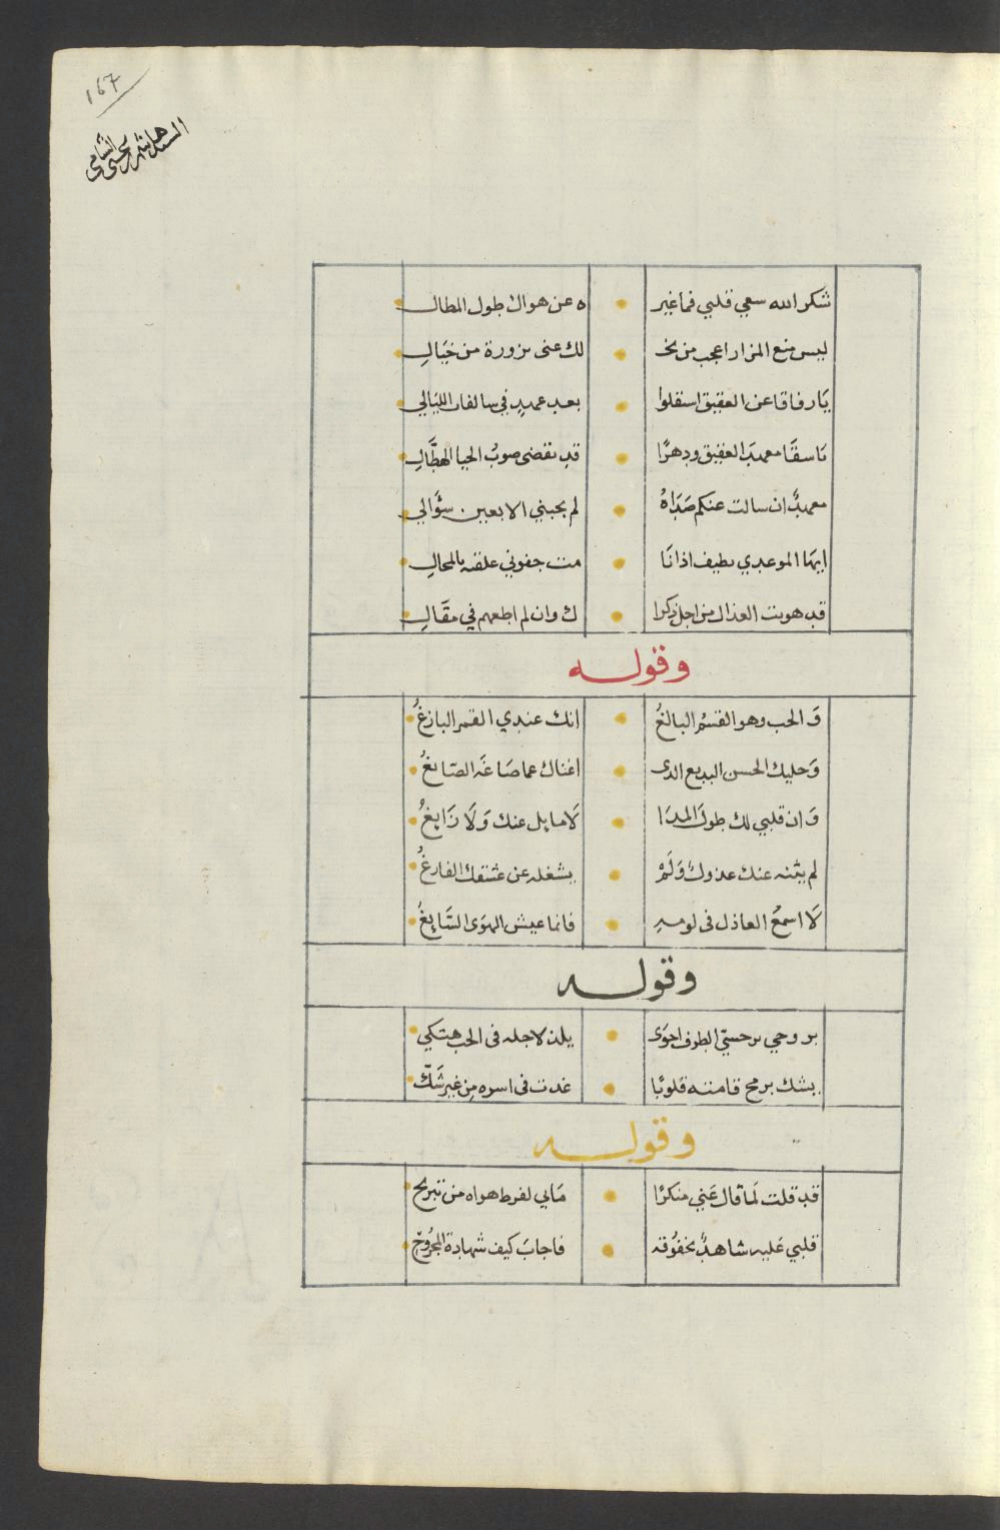 167
السيد هاشم بن يحيى الشامي
شكر الله سعي قلبي فما غير ه عن هواك طول المطال
ليس منع المزار اعجب من بخـ لك عنى بزورة من خيال
يا رفاقا عن العقيق استقلوا بعد عهد في سالفات الليالي
ما سقا معهد العقيق ودهرًا قد تقضى صوب الحيا الهطال
معهدٌ ان سالت عنكم صداهُ لم يجبني الا بعين سؤالي
ايها الموعدي بطيف اذا نا مت جفوني علقته بالمحال
قد هويت العذال من اجل ذكرا ك وان لم اطعهم في مقال
وقوله
وَ الحب وهو القسم البالغُ انك عندي القمر البازغُ
وَحليك الحسن البديع الذى اغناك عما صَاغه الصَائغُ
وَان قلبي لك طول المدا لَا مايل عنك وَلَا زَايغُ
لم يثنه عنك عذول وَلَمْ يشغله عن عشقك الفارغُ
لَا اسمعُ العاذل فى لومه فانما عيش الهوَى السَّايغُ
وقوله
بروحي نرجسيّ الطرف احوَى يلذ لاجله فى الحب هتكي
يشك برمح قامته قلوبًا غدت فى اسره مِن غير شَكّ
وقوله
قد قلت لمَا قال عَني منكرًا مَا بي لفرط هواه من تبريح
قلبي عَليه شاهدٌ بخفُوقه فاجابَ كيف شهادة المجرُوحِ